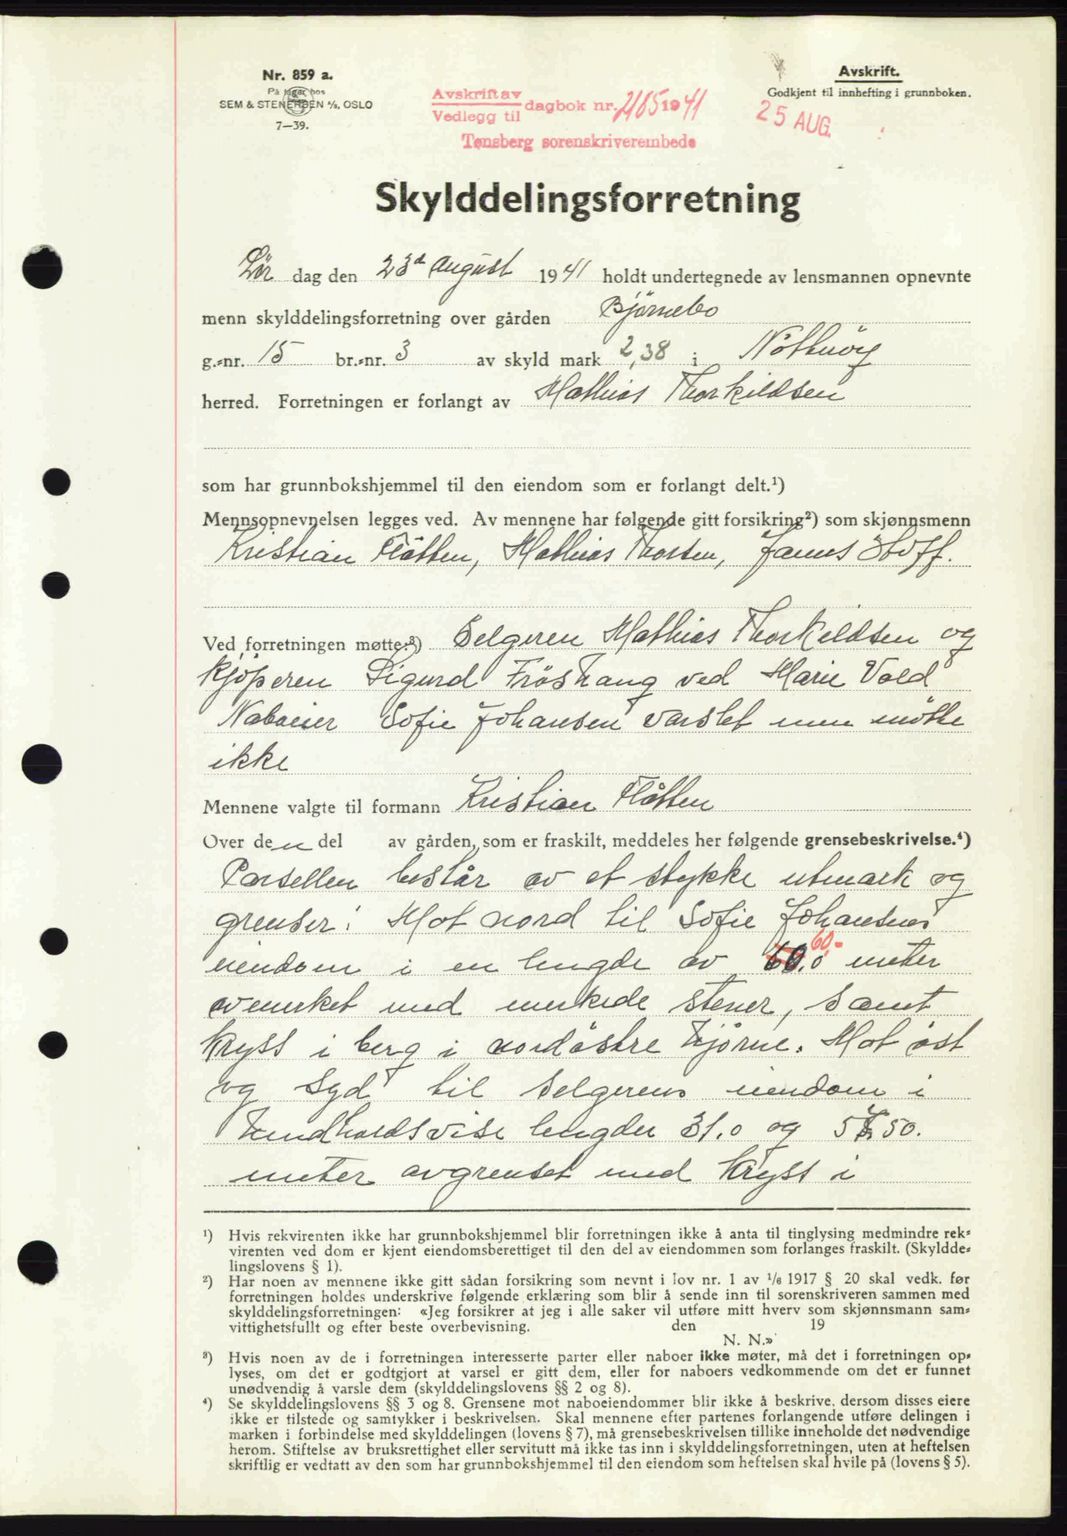 Nr. 859 a.
På lager hos
SEM & STENERSEN A/S, OSLO
7—39.
Avskrift av
Vedlegg til
dagbok nr. 2185 1941
Tønsberg sorenskriverembede
Avskrift.
Godkjent til innhefting i grunnboken.
25 AUG.
Skylddelingsforretning
Lør dag den 23d August 1941 holdt undertegnede av lensmannen opnevnte
menn skylddelingsforretning over gården Bjørnebo
g.-nr. 15 br.-nr. 3 av skyld mark 2,38 i Nøtterøy
herred. Forretningen er forlangt av Mathias Thorkildsen
som har grunnbokshjemmel til den eiendom som er forlangt delt.¹)
Mennsopnevnelsen legges ved. Av mennene har følgende gitt forsikring²) som skjønnsmenn
Kristian Flåtten, Mathias Thorsen, James Hoff.
Ved forretningen møtte:³) Selgeren Mathias Thorkildsen og
kjøperen Sigurd Frøshaug ved Marie Vold
Naboeier Sofie Johansen varslet men møtte
ikke
Mennene valgte til formann Kristian Flåtten
Over den del av gården, som er fraskilt, meddeles her følgende grensebeskrivelse.⁴)
Parsellen består av et stykke utmark og
grenser: Mot nord til Sofie Johansens
eiendom i en lengde av 60.0 60.- meter
avmerket med merkede stener, samt
kryss i berg i nordøstre hjørne. Mot øst
og Syd til selgerens eiendom i
hendholdsvise lengder 31.0 og 57.50.
meter avgrenset med kryss i
¹) Hvis rekvirenten ikke har grunnbokshjemmel blir forretningen ikke å anta til tinglysing medmindre rek-
virenten ved dom er kjent eiendomsberettiget til den del av eiendommen som forlanges fraskilt. (Skyldde-
lingslovens § 1).
²) Har noen av mennene ikke gitt sådan forsikring som nevnt i lov nr. 1 av 1/6 1917 § 20 skal vedk. før
forretningen holdes underskrive følgende erklæring som blir å sende inn til sorenskriveren sammen med
skylddelingsforretningen: «Jeg forsikrer at jeg i alle saker vil utføre mitt hverv som skjønnsmann sam-
vittighetsfullt og efter beste overbevisning. den 19
N. N.»
³) Hvis noen av de i forretningen interesserte parter eller naboer ikke møter, må det i forretningen op-
lyses, om det er godtgjort at varsel er gitt dem, eller for naboers vedkommende om det er funnet
unødvendig å varsle dem (skylddelingslovens §§ 2 og 8).
⁴) Se skylddelingslovens §§ 3 og 8. Grensene mot naboeiendommer blir ikke å beskrive, dersom disses eiere
ikke er tilstede og samtykker i beskrivelsen. Skal mennene efter partenes forlangende utføre delingen i
marken i forbindelse med skylddelingen (lovens § 7), må grensebeskrivelsen tillike inneholde det nødvendige
herom. Stiftelse av bruksrettighet eller servitutt må ikke tas inn i skylddelingsforretningen, uten at heftelsen
skriftlig er vedtatt av den som har grunnbokshjemmel til den eiendom som heftelsen skal hvile på (lovens § 5).